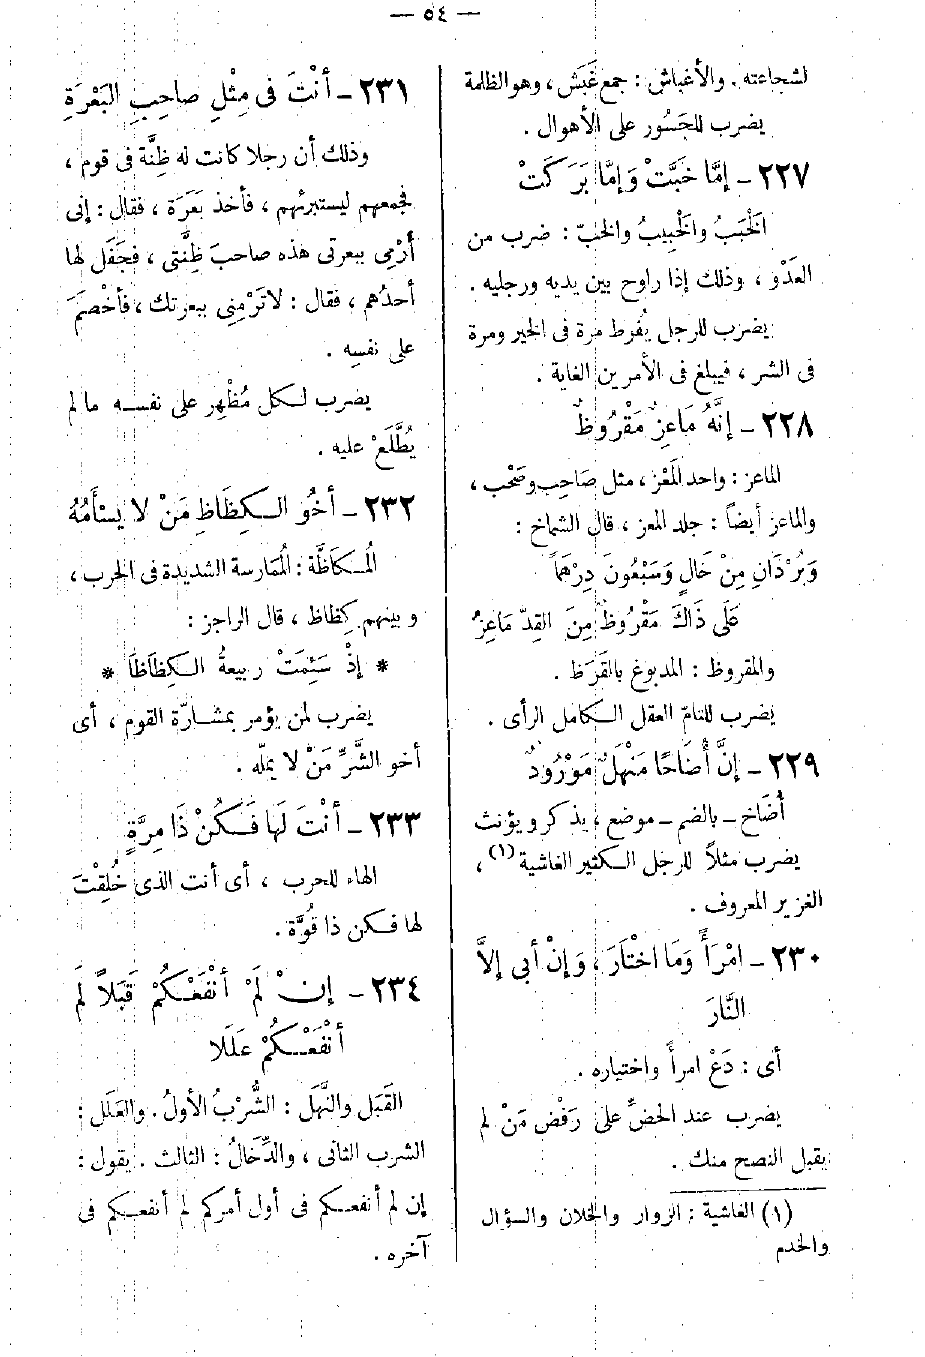 — ٥٤ —
لشجاعته . والأغباش : جمع غَبَش ، وهو الظلمة
يضرب للجَسُور على الأهوال .
٢٢٧ – إمَّا خَبَّتْ وَإمَّا بَرَ كَتْ
الْخَبَبُ والْخَبِيبُ والخَبّ : ضرب من
العَدْو ، وذلك إذا راوح بين يديه ورجليه .
يضرب للرجل يُفْرِط مرة فى الخير ومرة
فى الشر ، فيبلغ فى الأمرين الغاية .
٢٢٨ – إنَّهُ مَاعِزٌ مَقْرُوظٌ
الماعز : واحد المَعْز ، مثل صَاحِب وصَحْب ،
والماعز أيضاً : جلد المعز ، قال الشماخ :
وَبُرْدَانِ مِنْ خَالٍ وَسَبْعُونَ دِرْهَماً
عَلَى ذَاكَ مَقْرُوظٌ مِنَ القِدِّ مَاعِزُ
والمقروظ : المدبوغ بالقَرَظ .
يضرب للتامّ العقل الكامل الرأى .
٢٢٩ – إنَّ أُضَاخًا مَنْهَلٌ مَوْرُودٌ
أُضَاخ – بالضم – موضع ، يذكر ويؤنث
يضرب مثلاً للرجل الكثير الغاشية (١) ،
الغزير المعروف .
٢٣٠ – امْرَأً وَمَا اخْتَارَ ، وَإنْ أبى إلاَّ
النَّارَ
أى : دَعْ امرأً واختياره .
يضرب عند الحضِّ على رَفْض مَنْ لم
يقبل النصح منك .
(١) الغاشية : الزوار والخلان والسؤال
والخدم
٢٣١ – أنْتَ فى مِثْلِ صاحِبِ البَعْرَةِ
وذلك أن رجلا كانت له ظِنَّة فى قوم ،
فجمعهم ليستبرئهم ، فأخذ بَعَرَة ، فقال : إنى
أرْمِى ببعرتى هذه صاحبَ ظِنَّتى ، فجَفَل لها
أحدُهم ، فقال : لا تَرْمِنِى ببعرتك ، فأخْصَمَ
على نفسِه .
يضرب لكل مُظْهِر على نفسه ما لم
يُطَّلَعْ عليه .
٢٣٢ – أخُو الكِظَاظِ مَنْ لا يَسْأَمُهُ
الْمُكَاظَّة : الْمُمَارسة الشديدة فى الحرب ،
وبينهم كِظاظ ، قال الراجز :
* إذْ سَئِمَتْ ربيعةُ الكِظَاظَا *
يضرب لمن يؤمر بمشارّة القوم ، أى
أخو الشَّرِّ مَنْ لا يملّه .
٢٣٣ – أنْتَ لَهَا فَكُنْ ذَا مِرَّةٍ
الهاء للحرب ، أى أنت الذى خُلِقْتَ
لها فكن ذا قُوَّة .
٢٣٤ – إنْ لَمْ أنْفَعْكُمْ قَبَلاً لَمْ
أنْفَعْكُمْ عَلَلَا
القَبَل والنَّهَل : الشُّرْبُ الأولُ . والعَلَل :
الشرب الثانى ، والدِّخَالُ : الثالث . يقول :
إن لم أنفعكم فى أول أمركم لم أنفعكم فى
آخره .